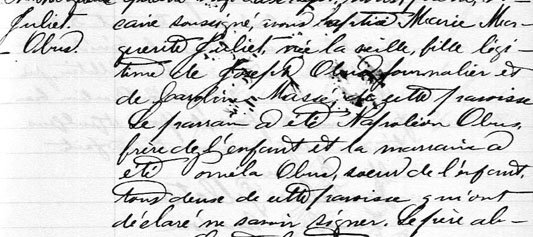 Juliet.
Obus.
caire soussigné, nous baptisé Marie Mar-
guerite Juliet, née la veille, fille légi-
time de Joseph Obus journalier et
de Caroline Massé, de cette paroisse
Le parrain a été Napoléon Obus,
frère de l'enfant et la marraine a
été Obus, soeur de l'enfant,
tous deux de cette paroisse qui ont
déclaré ne savoir signer. Le père ab-